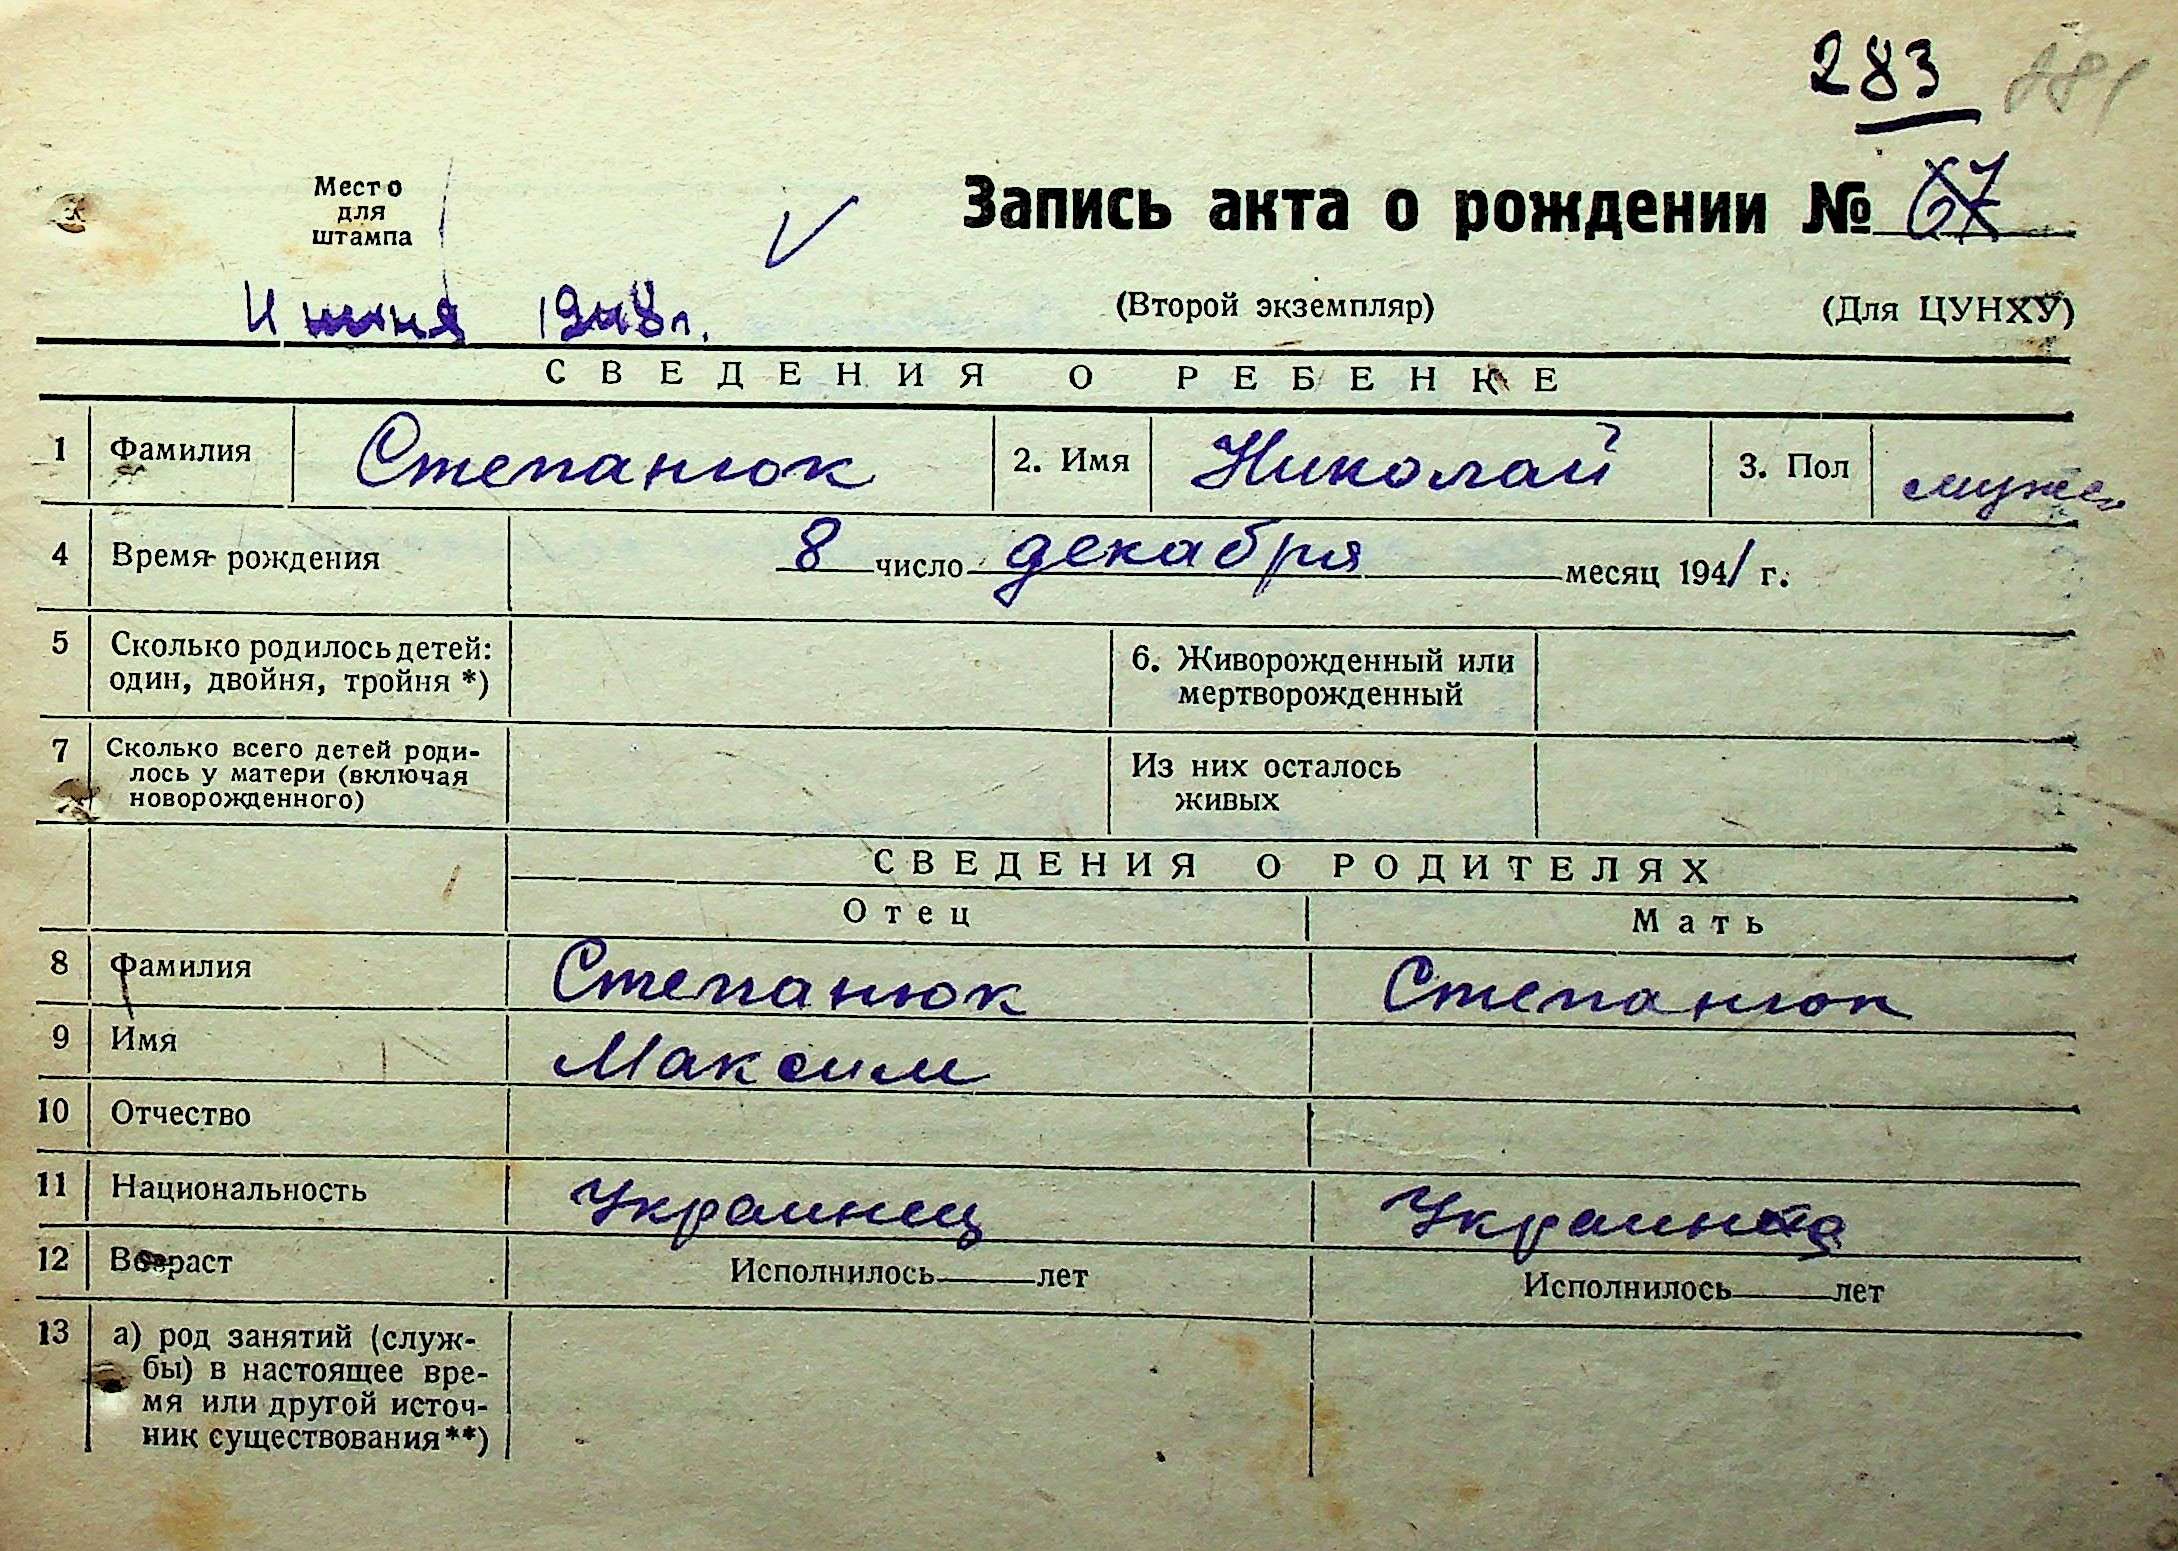 283
Место
для
штампа
Запись акта о рождении № 67
Июня 1948 г.
(Второй экземпляр) (Для ЦУНХУ)
СВЕДЕНИЯ О РЕБЕНКЕ
1 Фамилия Степанюк 2. Имя Николай 3. Пол мужск
4 Время рождения 8 число декабря месяц 1941 г.
5 Сколько родилось детей: 6. Живорожденный или
один, двойня, тройня *) мертворожденный
7 Сколько всего детей роди- Из них осталось
лось у матери (включая живых
новорожденного)
СВЕДЕНИЯ О РОДИТЕЛЯХ
Отец Мать
8 Фамилия Степанюк Степанюк
9 Имя Максим
10 Отчество
11 Национальность Украинец Украинка
12 Возраст Исполнилось лет Исполнилось лет
13 а) род занятий (служ-
бы) в настоящее вре-
мя или другой источ-
ник существования**)